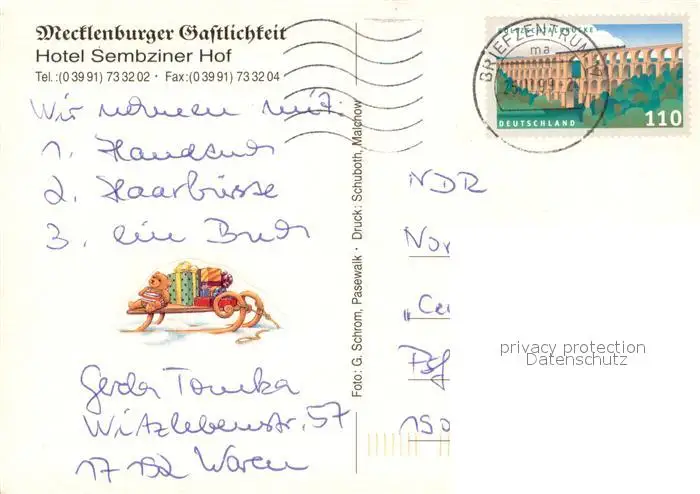 Mecklenburger Gastlichkeit
Hotel Sembziner Hof
Tel.:(0 39 91) 73 32 02 · Fax:(0 39 91) 73 32 04
Wir nehmen mit:
1. Handtuch
2. Haarbürste
3. ein Buch
Gerda Tomka
Witzlebenstr. 57
17192 Waren
Foto: G. Schrom, Pasewalk · Druck: Schuboth, Malchow
GÖLTZSCHTALBRÜCKE
DEUTSCHLAND 110
BRIEFZENTRUM
ma
NDR
Nor
„Ce
Pf
190
privacy protection
Datenschutz